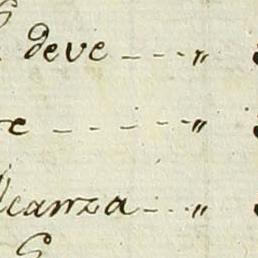 deve - - - - "
re - - - - - "
lcanza - - - "